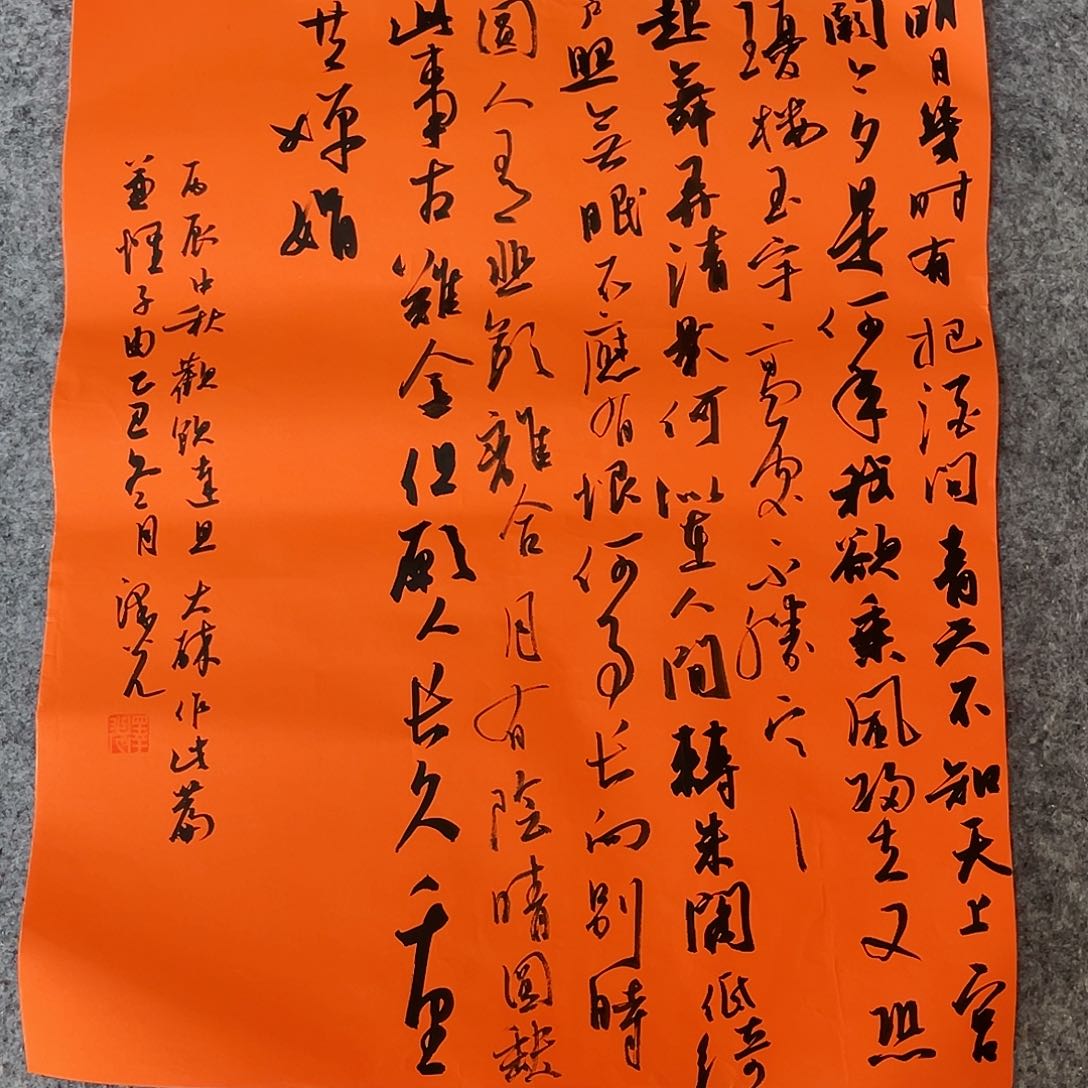 明月幾时有把酒问青天不知天上宫
闕今夕是何年我欲乘風歸去又恐
瓊楼玉宇高處不勝寒
起舞弄清影何似在人间轉朱阁低绮
户照無眠不應有恨何事长向别時
圓人有悲歡離合月有陰晴圓缺
此事古難全但願人长久千里
共嬋娟
丙辰中秋歡飲達旦大醉作此篇
兼懷子由乙巳冬月